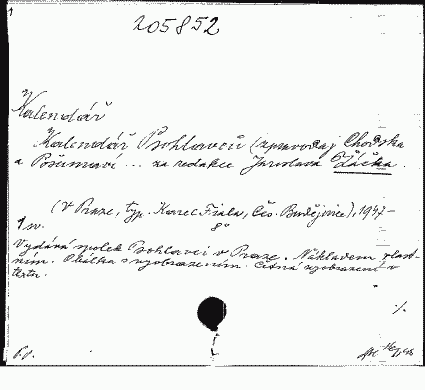 205852
Kalendář
Kalendář Psohlavců (zpravodaj Chodska
a Pošumaví ... za redakce Jaroslava Žáčka.
(V Praze, typ. Karel Fiala, Čes. Budějovice), 1947-
8°
1 sv.
Vydává spolek Psohlavci v Praze. Nákladem vlast-
ním. Obálka s vyobrazením. Četná vyobrazení v
textu.